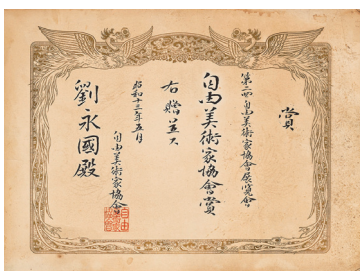 賞
第二回自由美術家協會展覽會
自由美術家協會賞
右贈呈ス
昭和十三年五月
自由美術家協會
劉永國殿